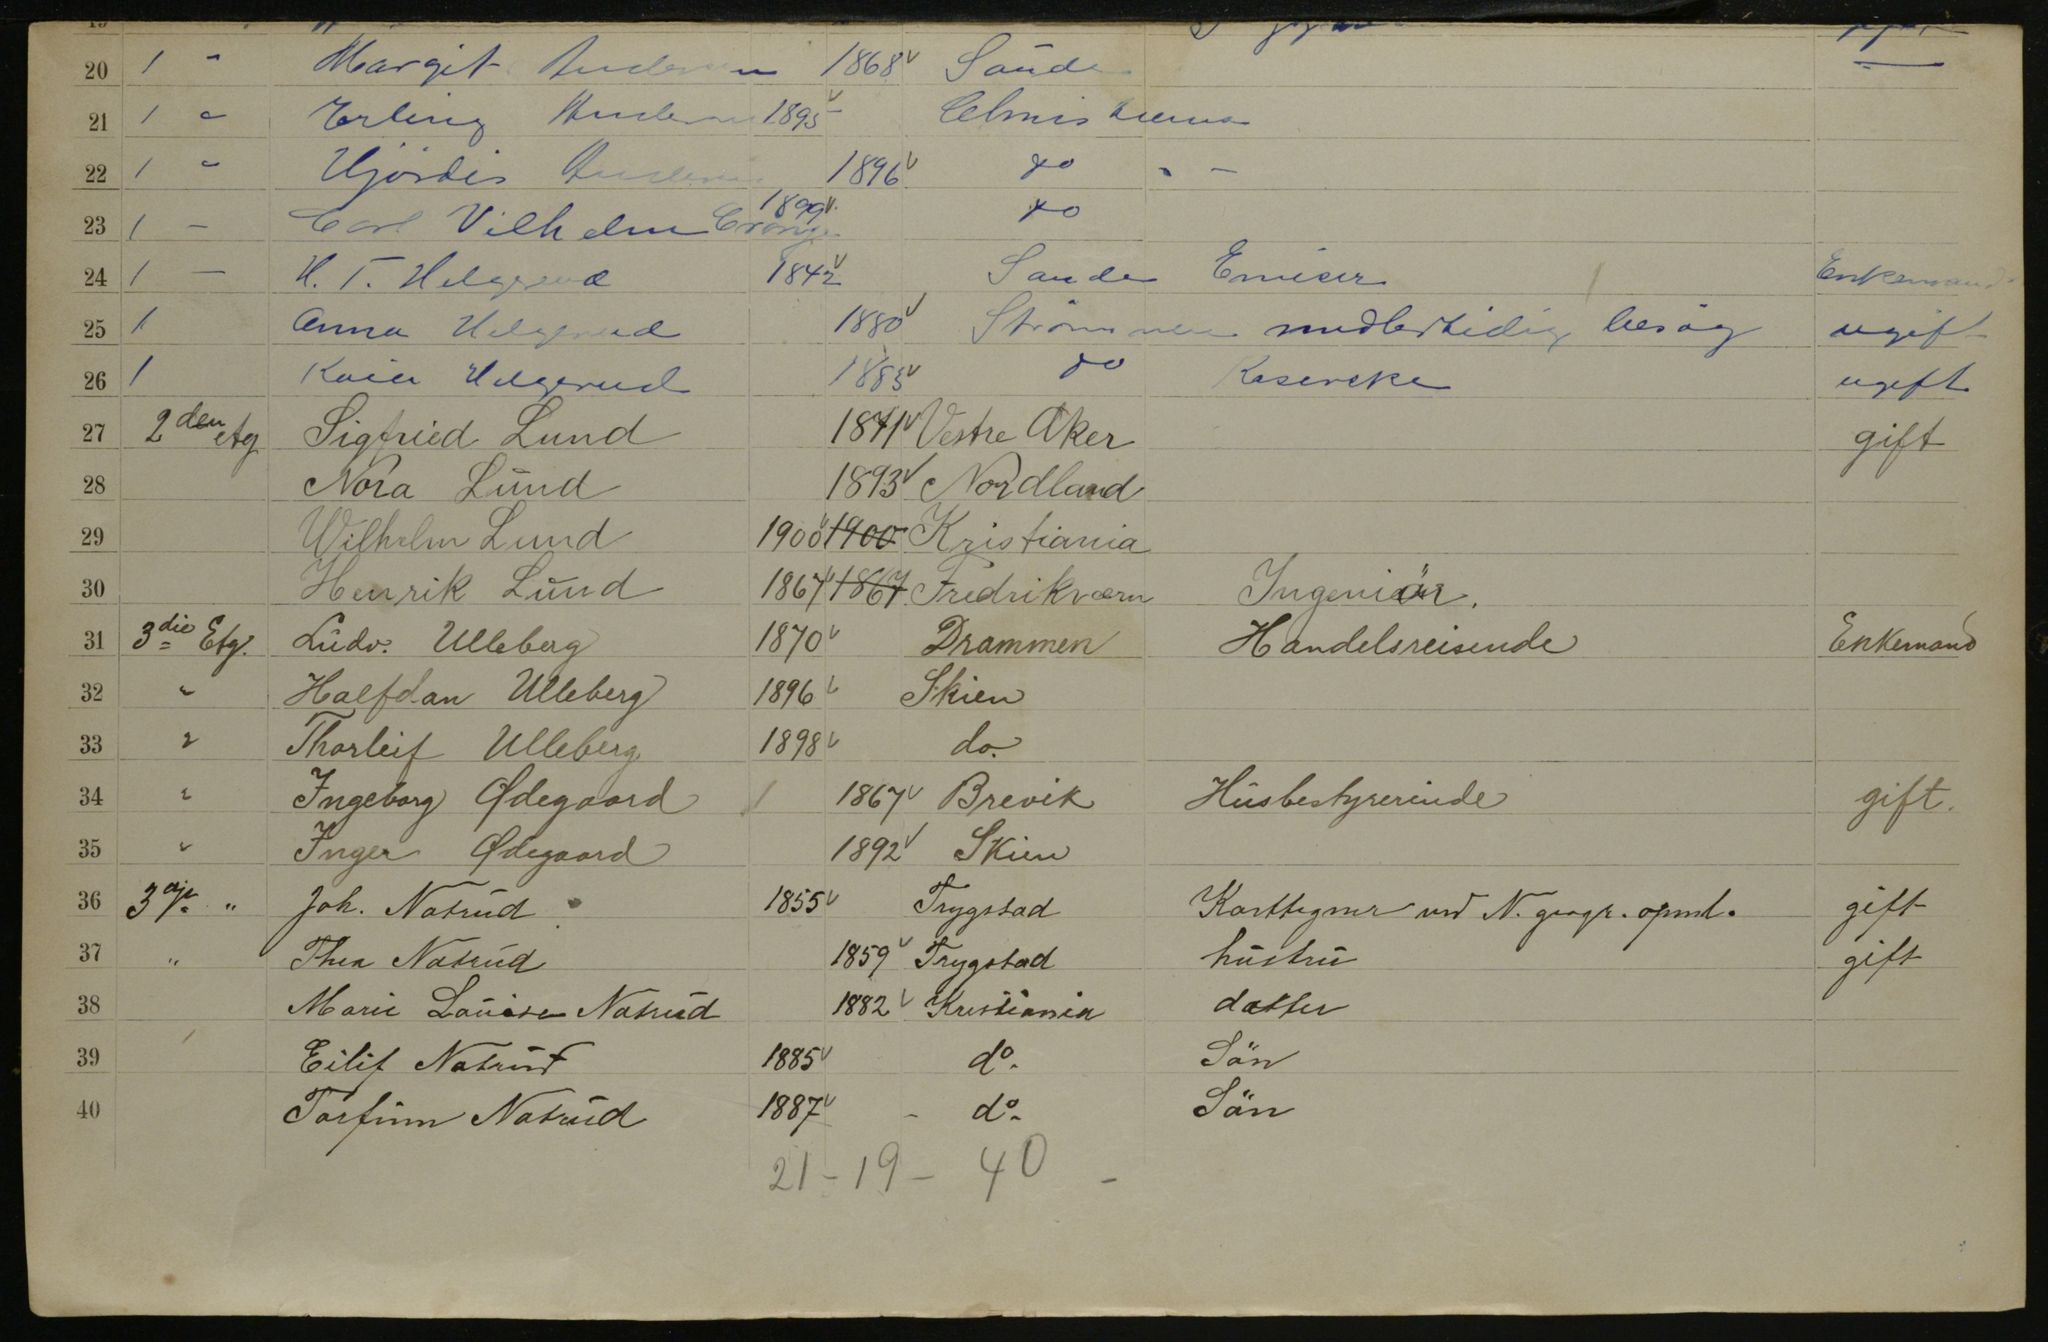 20 1 " Margit Andersen 1868 Sande
21 1 " Erling Andersen 1895
22 1 " Hjördis Andersen 1896 do " -
23 1 - Carl Vilhelm 1899 do
24 1 - H. T. Helgerud 1842 Sande Enkemand
25 1 Anna Helgerud 1880 Strömmen midlertidig besög ugift
26 1 Kaia Helgerud 1883 do Kaserske ugift
27 2den etg Sigfried Lund 1871 Vestre Aker gift
28 Nora Lund 1893 Nordland
29 Wilhelm Lund 1900 1900 Kristiania
30 Henrik Lund 1867 1867 Fredriksværn Ingeniör.
31 3die Etg. Ludv. Ulleberg 1870 Drammen Handelsreisende Enkemand
32 " Halfdan Ulleberg 1896 Skien
33 " Thorleif Ulleberg 1898 do.
34 " Ingeborg Ødegaard 1867 Brevik Husbestyrerinde gift.
35 " Inger Ødegaard 1892 Skien
36 3dje " Joh. Natrud 1855 Trygstad Karttegner ved N. geogr. opml. gift
37 " Thea Natrud 1859 Trygstad hustru gift
38 Marie Louise Natrud 1882 Kristiania datter
39 Eilif Natrud 1885 do. Sön
40 Torfinn Natrud 1887 - do. Sön
21 - 19 - 40 -